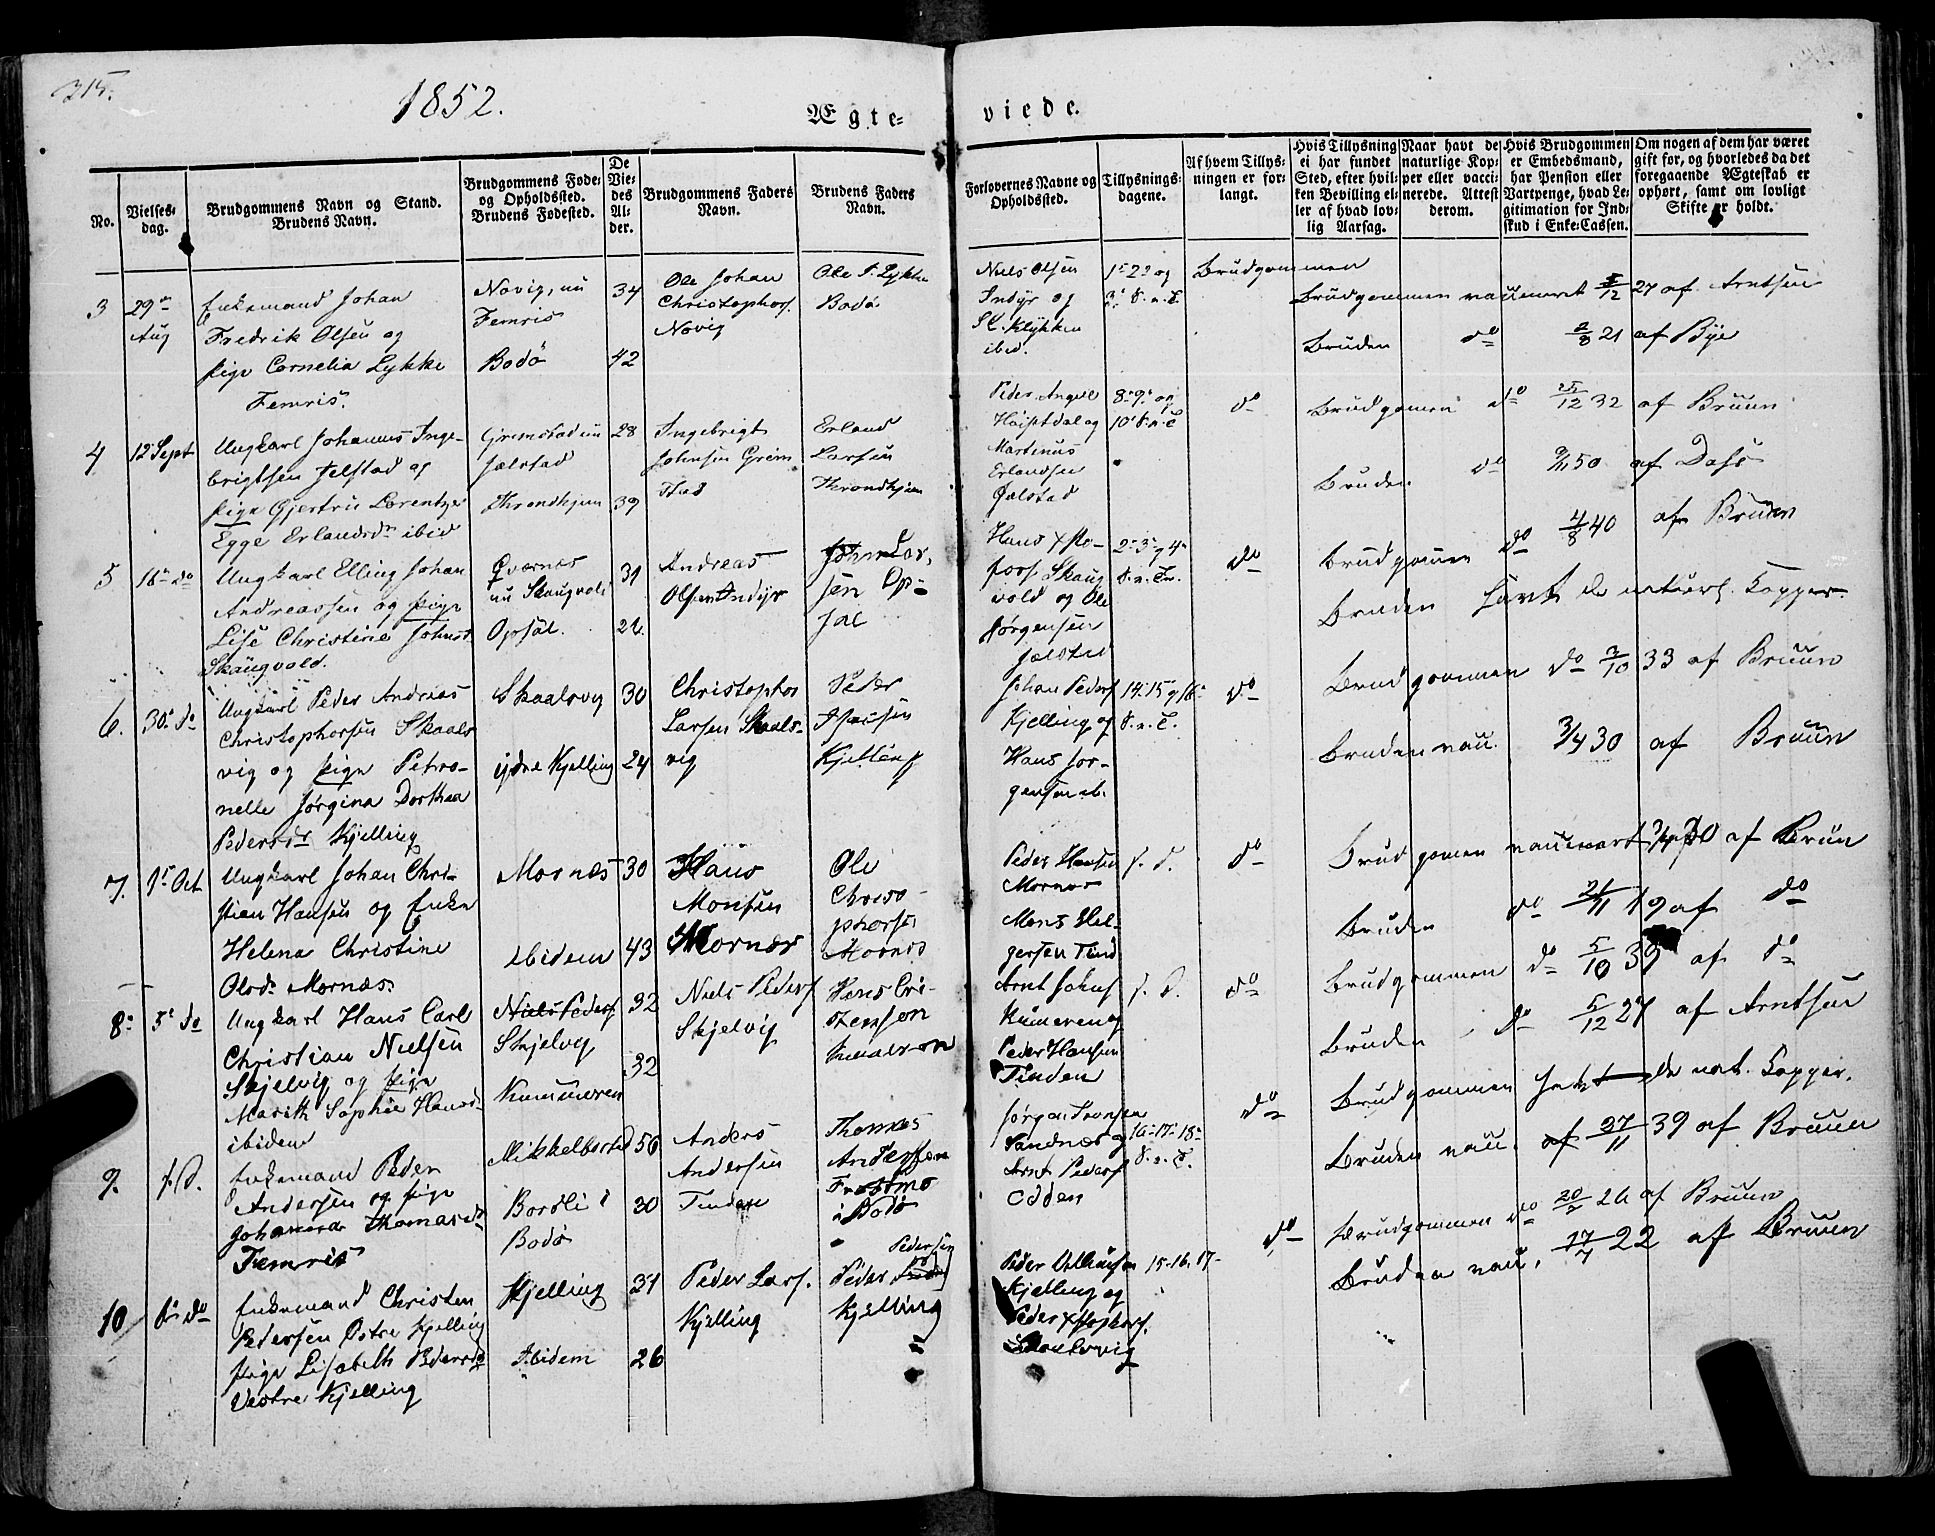 315.
1852.
Ægte=
viede.
No.
Vielses-
dag.
Brudgommens Navn og Stand.
Brudens Navn.
Brudgommens Føde-
og Opholdssted.
Brudens Fødested.
De
Vie-
des
Al-
der.
Brudgommens Faders
Navn.
Brudens Faders
Navn.
Forlovernes Navne og
Opholdssted.
Tillysnings-
dagene.
Af hvem Tillys-
ningen er for-
langt.
Hvis Tillysning
ei har fundet
Sted, efter hvil-
ken Bevilling el-
ler af hvad lov-
lig Aarsag.
Naar havt de
naturlige Kop-
per eller vacci-
nerede. Attest
derom.
Hvis Brudgommen
er Embedsmand,
har Pension eller
Vartpenge, hvad Le-
gitimation for Ind-
skud i Enke-Cassen.
Om nogen af dem har været
gift før, og hvorledes da det
foregaaende Ægteskab er
ophørt, samt om lovligt
Skifte er holdt.
3
29de
Aug
Enkemand Johan
Fredrik Olsen og
Pige Cornelia Lykke
Femris.
Novig, nu
Femris
Bodø
34
42
Ole Johan
Christophers.
Novig
Ole P. Lykke
Bodø
Niels Olsen
Indyr og
ibid.
1ste 2den og
3die S. e. T.
Brudgommen
Brudgommen vaccineret 5/12 27 af Arntsen
Bruden do 2/8 21 af Bye
4
12 Sept
Ungkarl Johannes Inge-
brigtsen Jelstad og
Pige Gjertru Lorentze
Egge Erlandsdr ibid
Grimstad nu
Jelstad
Throndhjem
28
39
Ingebrigt
Johnsen Grim
stad
Erland
Larsen
Throndhjem
Peder Angel
Høistdal og
Martinus
Erlandsen
Jelstad
8de 9de og
10de S. e. T
do
Brudgommen do 5/12 32 af Bruun
Bruden do 50 af Dass
5
16de do
Ungkarl Elling Johan
Andreassen og Pige
Lise Christine Johnsd.
Skaugvold.
Qvernes
nu Skaugvold
Opsal.
31
Andreas
Olsen Indyr
John Lar-
sen Op-
sal
Hans Xsto-
fers. Skaug
vold og Ole
Jørgensen
Jelstad
2den 3die og 4de
S. e. Tr.
do
Brudgommen do 4/8 40 af Bruun
Bruden havt de naturl. Kopper.
6.
30te do
Ungkarl Peder Andreas
Christophersen Skaals
vig og Pige Petro-
nelle Jørgina Dorthea
Pedersdr Kjelling
Skaalsvig
ydre Kjelling
30
24
Christopher
Larsen Skaals-
vig
Peder
Kjelling
Johan Peders
Kjelling og
Hans Jør-
gensen ib.
14. 15 og 16de
S. e. T.
do
Brudgommen do 3/10 33 af Bruun
Bruden vacc. 3/4 30 af Bruun
7.
1ste Oct
Ungkarl Johan Chri-
stian Hansen og Enke
Helena Christine
Olsdr Mornæs.
Mornæs
Ibidem
30
43
Hans
Monsen
Mornæs
Ole
Christo-
phersen
Mornæs
Peder Hansen
Mornæs
Mons Hel-
gersen Tind
s. D.
do
Brudgommen vaccineret 3/4 30 af Bruun
Bruden do 21/11 19 af do
8de
5te do
Ungkarl Hans Carl
Christian Nielsen
Skjelvig og Pige
Marith Sophie Hansd.
ibidem
Niels Peders
Skjelvig
Kunmeren
32
32
Niels Peders
Skjelvig
Hans Cri-
stenson
Arnt Johns
Kunmeren og
Peder Hansen
Tinden
s. D.
do
Brudgommen do 5/10 39 af do
Bruden do 5/12 27 af Arntsen
9.
s. D.
Enkemand Peder
Andersen og Pige
Johanna Thomasdr
Femris
Mikkelborsted
Bordli i
Bodø
50
30
Anders
Andersen
Tinden
Thomas
Andersen
i Bodø
Jørgen Iversen
Sandnes og
Arnt Peders
Odden
16. 17. 18de
S. e. T.
do
Brudgommen havt de nat. Kopper.
Bruden vacc. af 27/11 39 af Bruun
10
6te do
Enkemand Christen
Pedersen Østre Kjelling
Pige Lisabeth Pedersdr
Vestre Kjelling
Kjelling
Ibidem
31
26
Peder Lars.
Kjelling
Pedersen
Peder
Kjelling
Peder
Kjelling og
Peder Xstophers.
Skaalsvig
15. 16. 17
do
Brudgommen do 26 af Bruun
Bruden vacc. 17/7 22 af Bruun